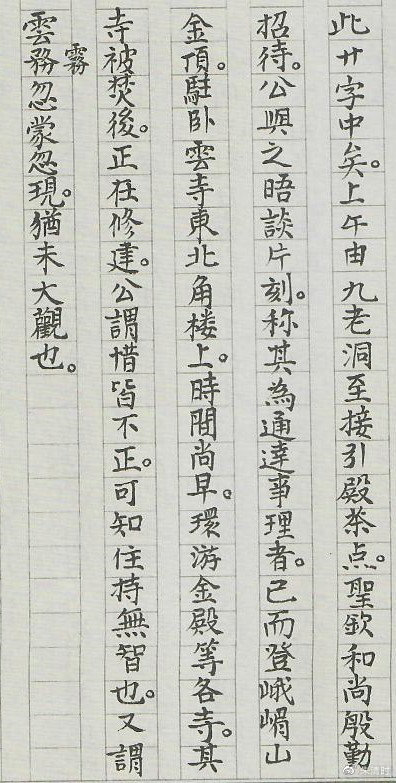 此廿字中矣。上午由九老洞至接引殿茶点。聖欽和尚殷勤
招待。公與之晤談片刻。称其為通達事理者。已而登峨嵋山
金頂。駐卧雲寺東北角楼上。時間尚早。環游金殿等各寺。其
寺被焚後。正在修建。公謂惜皆不正。可知住持無智也。又謂
霧
雲務忽蒙忽現。猶未大觀也。